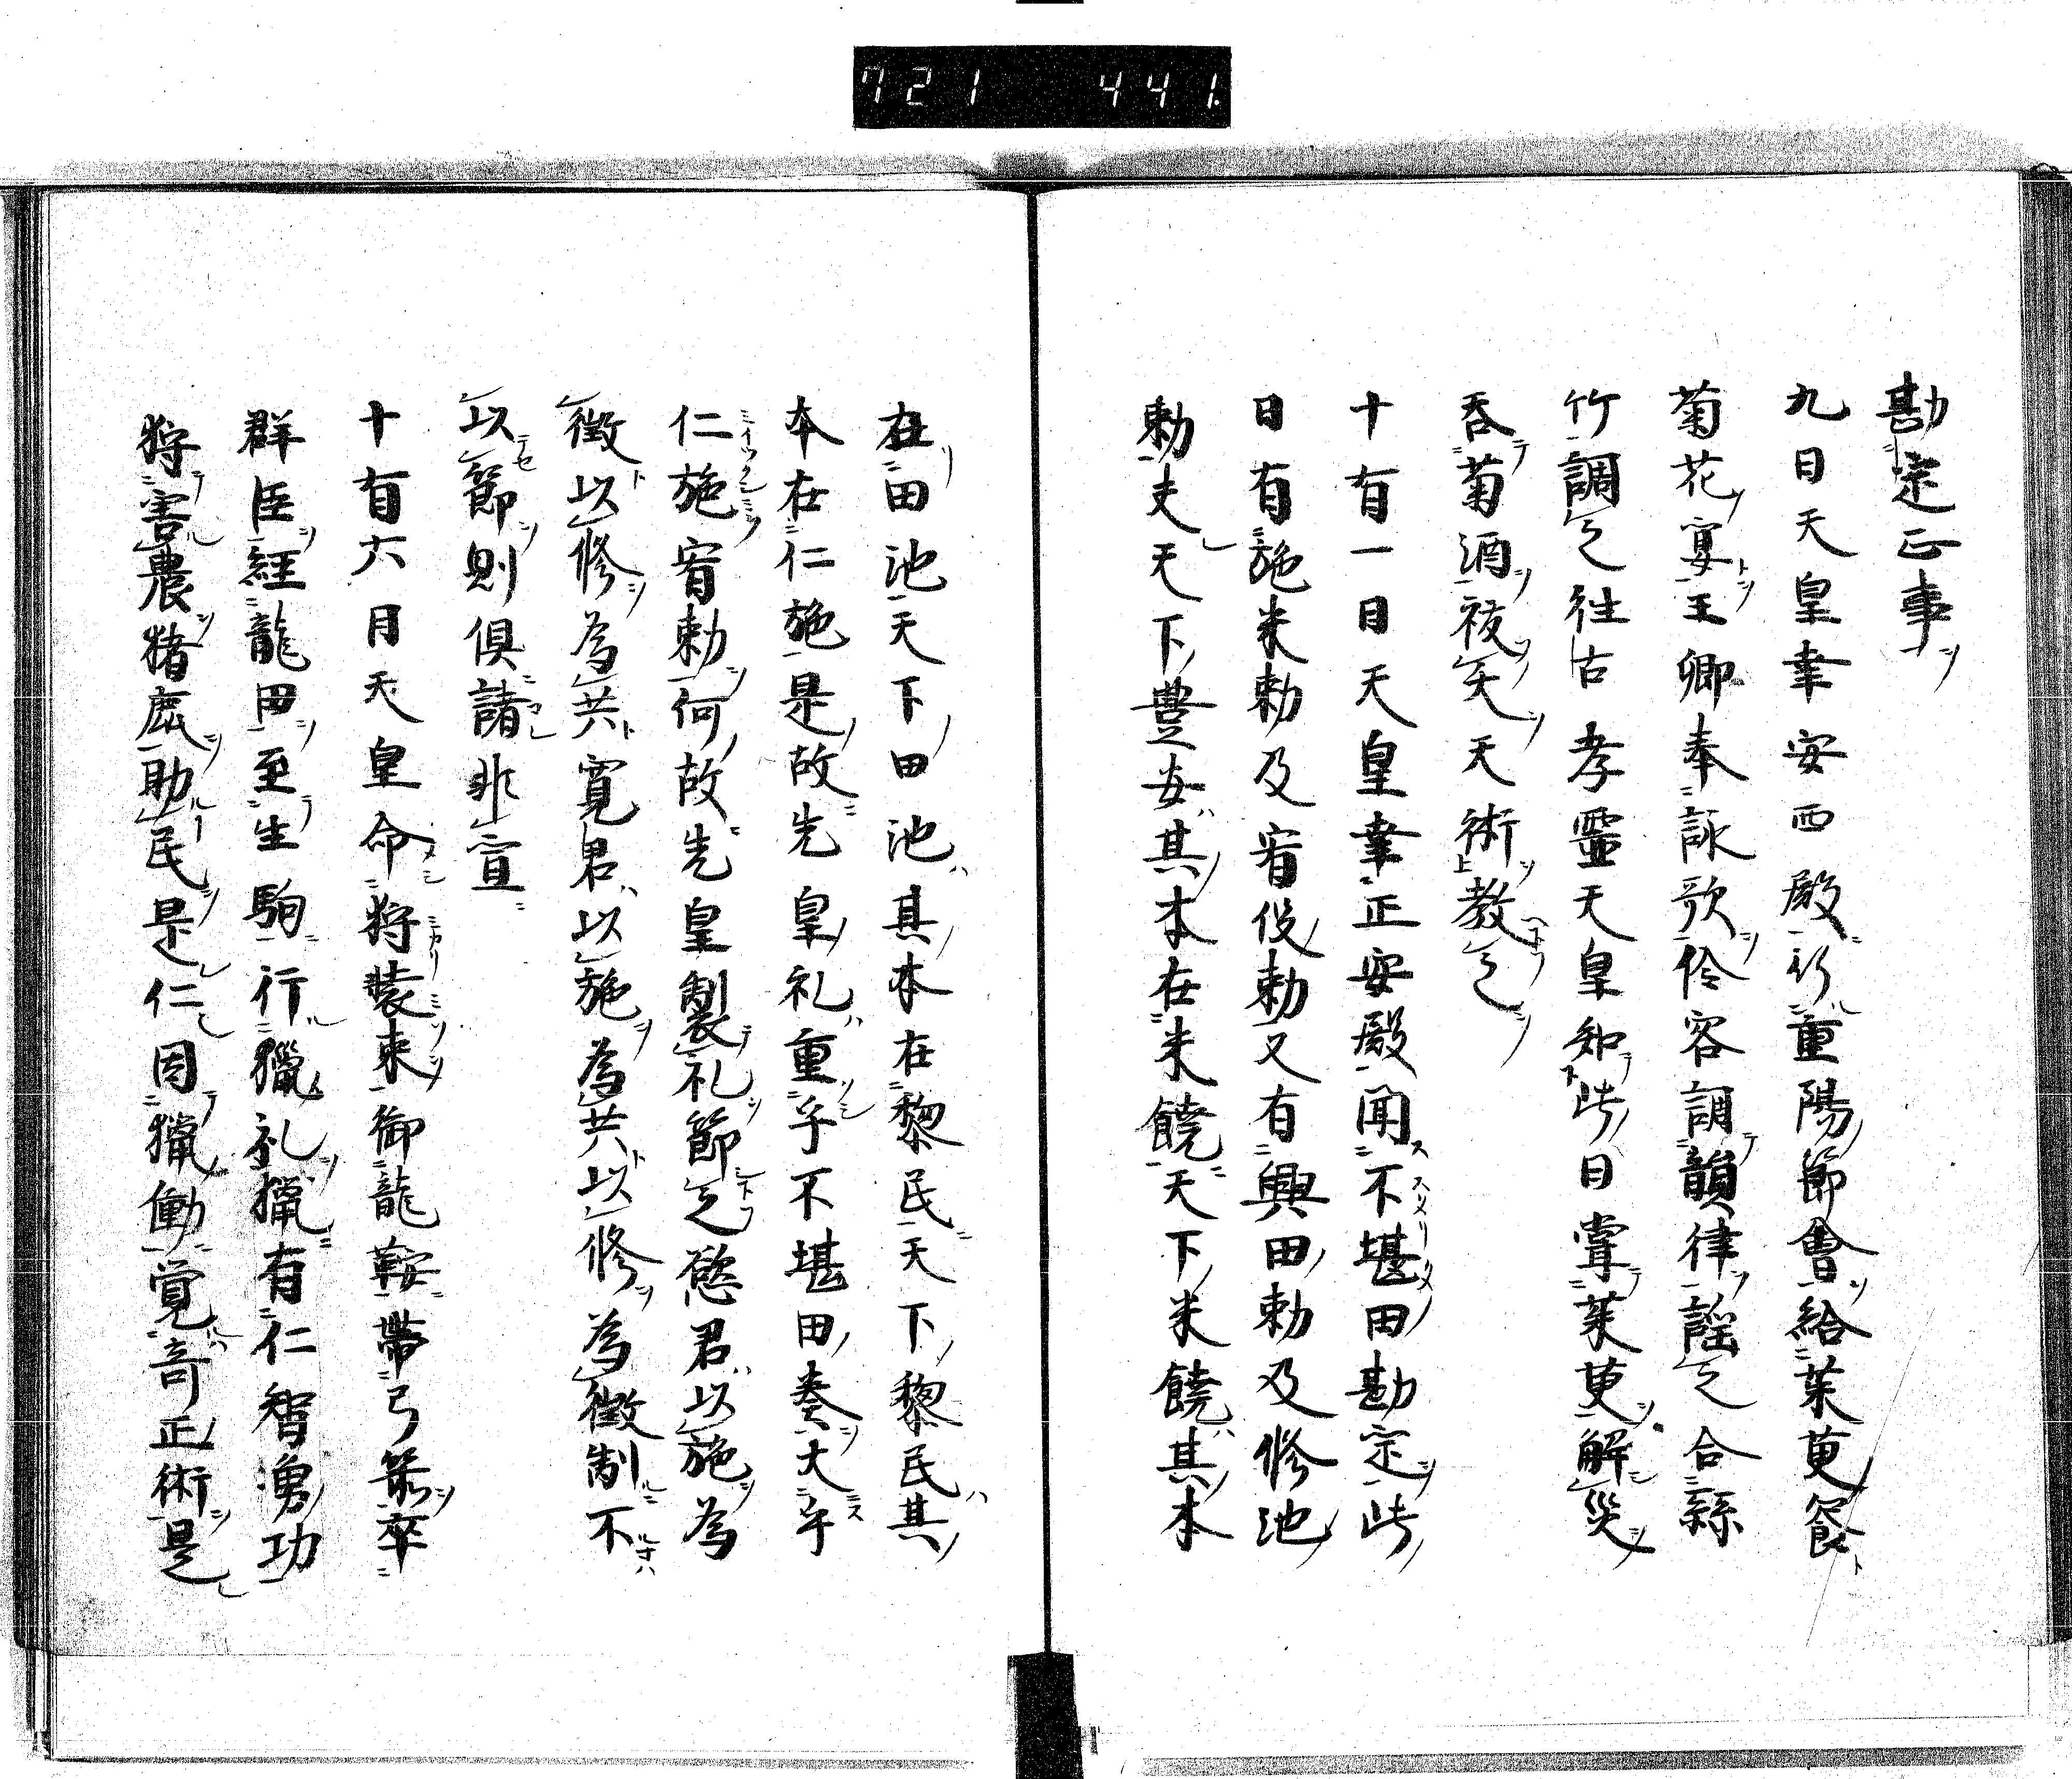 721 441.
勘定正事
九日天皇幸安西殿行重陽節會給茱萸餐
菊花宴王卿奉詠歌伶客調韻律謡之合絲
竹調之往古孝靈天皇知此日嘗茱萸解災
呑菊酒祓矢天術教之
十有一日天皇幸正安殿聞不堪田勘定此
日有施米勅及宥役勅又有興田勅及修池
勅夫天下豊安其本在米饒天下米饒其本
在田池天下田池其本在黎民天下黎民其
本在仁施是故先皇礼重乎不堪田奏大乎
仁施宥勅何故先皇製礼節之慾君以施為
徵以修為共寛君以施為共以修為徵制不
以節則倶諸非宣
十有六月天皇命狩装束御龍鞍帶弓箭卒
群臣經龍田至生駒行獵礼獵有仁智湧功
狩害農猪鹿助民是仁因獵働覚奇正術是